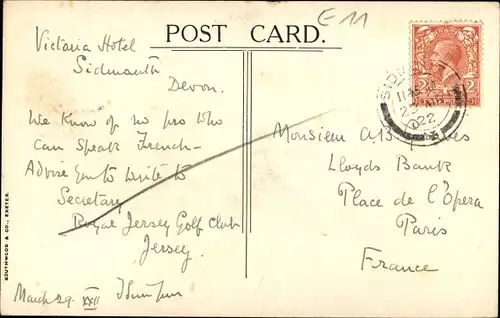 E 11
POST CARD.
Victoria Hotel
Sidmouth
Devon.
We know of no pro who
can speak French -
Advise you to write to
Secretary
Royal Jersey Golf Club
Jersey.
March 29 XXII
Monsieur A.B.
Lloyds Bank
Place de l'Opera
Paris
France
SIDMOUTH
SOUTHWOOD & CO., EXETER.